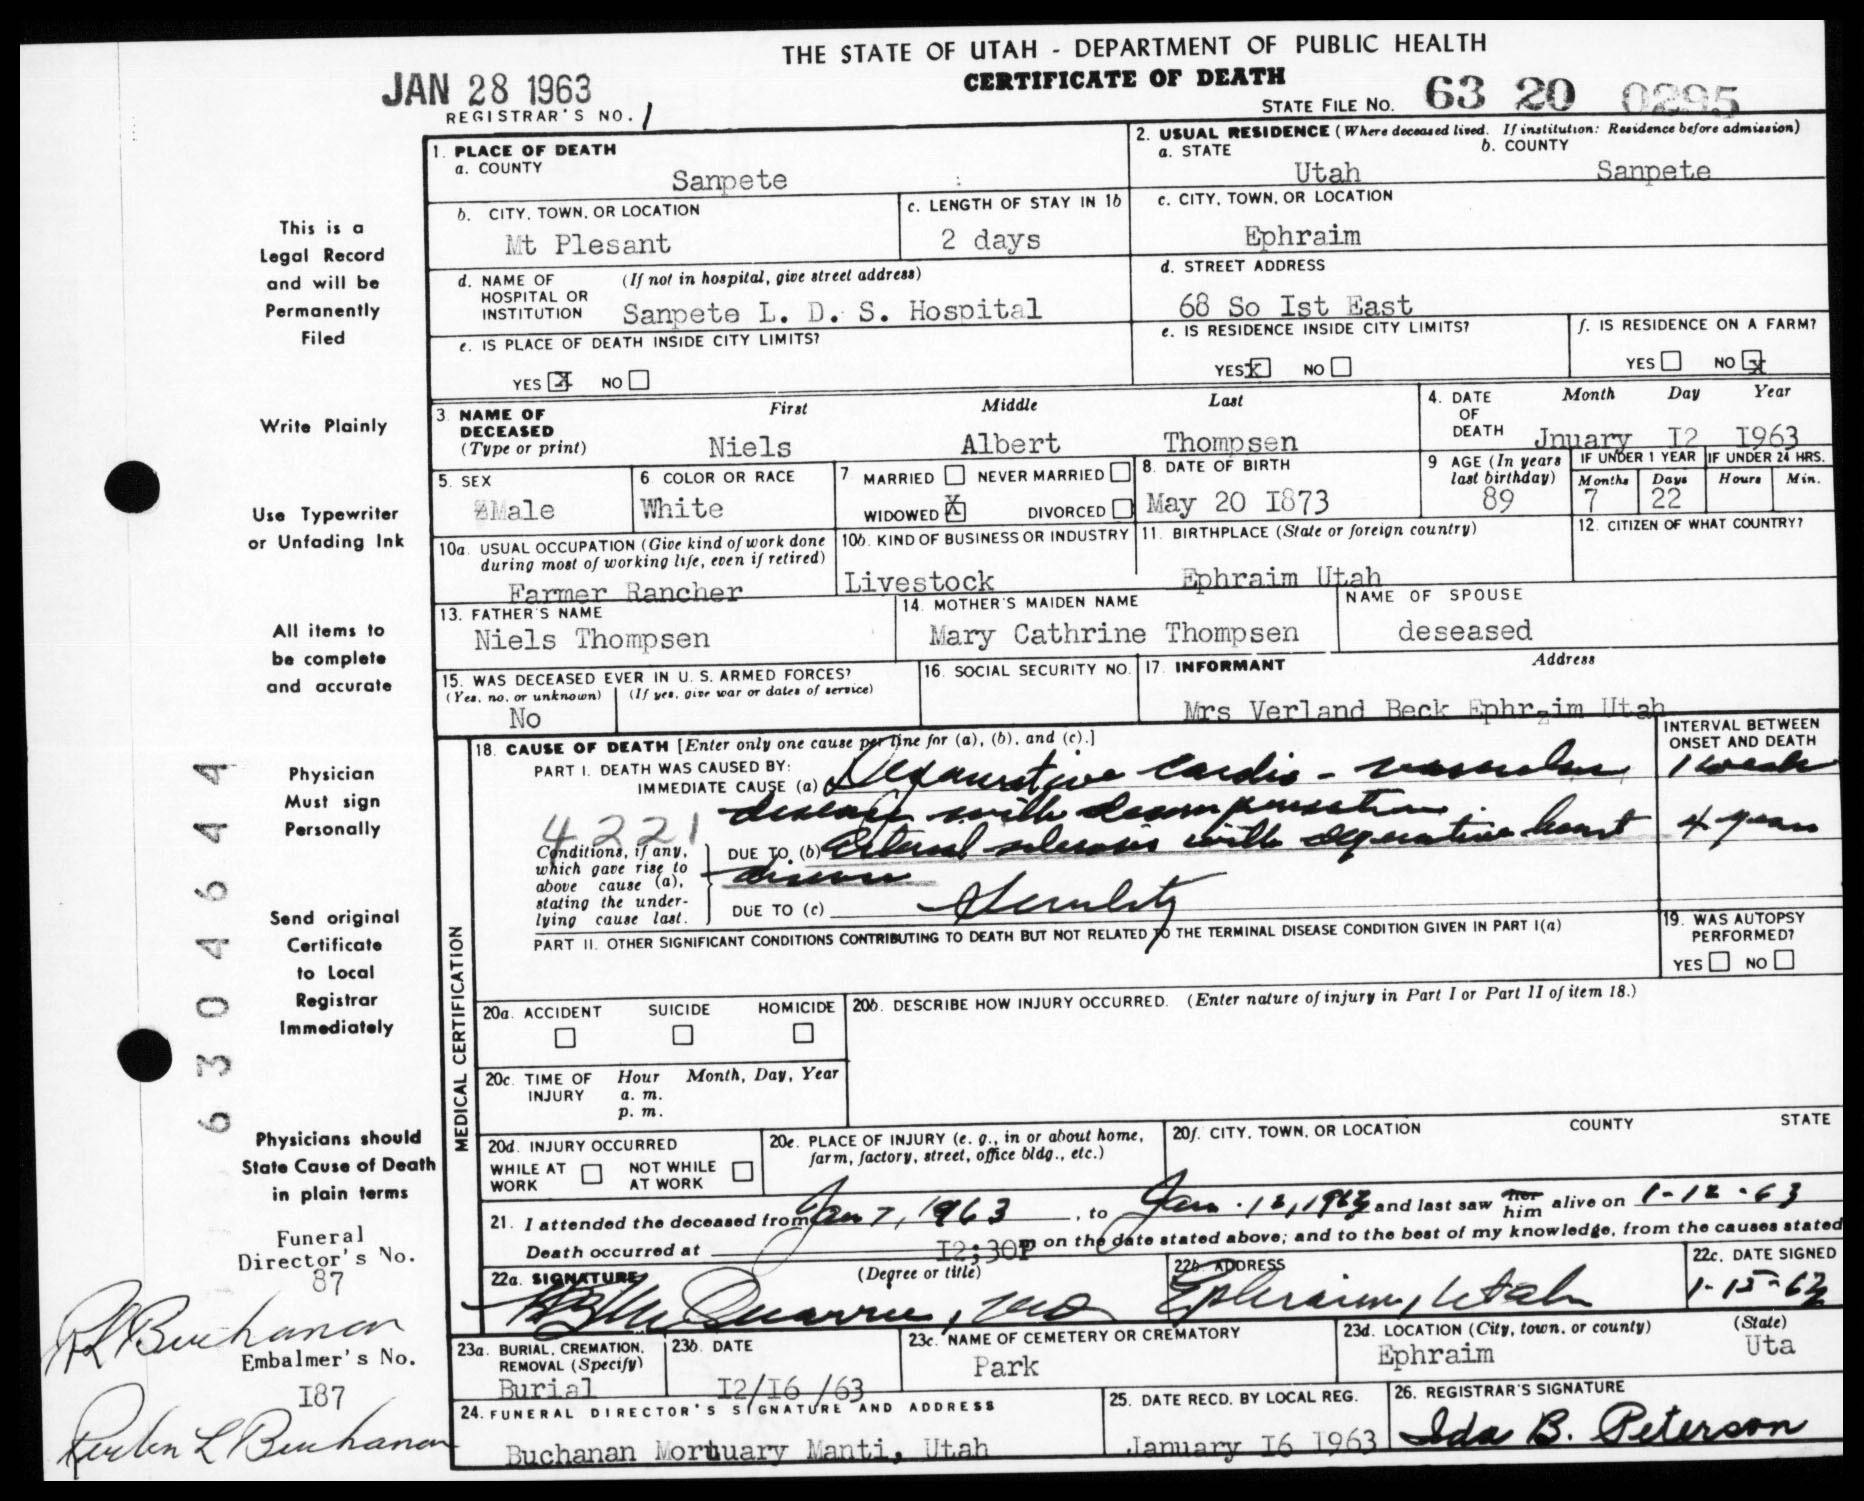 THE STATE OF UTAH - DEPARTMENT OF PUBLIC HEALTH
CERTIFICATE OF DEATH
JAN 28 1963
STATE FILE NO. 63 20 0295
REGISTRAR'S NO. 1
1. PLACE OF DEATH
a. COUNTY
Sanpete
2. USUAL RESIDENCE (Where deceased lived. If institution: Residence before admission)
a. STATE b. COUNTY
Utah Sanpete
b. CITY, TOWN, OR LOCATION
Mt Plesant
c. LENGTH OF STAY IN 1b
2 days
c. CITY, TOWN, OR LOCATION
Ephraim
d. NAME OF HOSPITAL OR INSTITUTION (If not in hospital, give street address)
Sanpete L. D. S. Hospital
d. STREET ADDRESS
68 So Ist East
e. IS PLACE OF DEATH INSIDE CITY LIMITS?
YES X NO
e. IS RESIDENCE INSIDE CITY LIMITS?
YES X NO
f. IS RESIDENCE ON A FARM?
YES NO X
3. NAME OF DECEASED (Type or print)
First Middle Last
Niels Albert Thompsen
4. DATE OF DEATH
Month Day Year
Jnuary I2 I963
5. SEX
Male
6 COLOR OR RACE
White
7 MARRIED NEVER MARRIED
WIDOWED X DIVORCED
8. DATE OF BIRTH
May 20 I873
9 AGE (In years last birthday)
89
IF UNDER 1 YEAR IF UNDER 24 HRS.
Months Days Hours Min.
7 22
10a. USUAL OCCUPATION (Give kind of work done during most of working life, even if retired)
Farmer Rancher
10b. KIND OF BUSINESS OR INDUSTRY
Livestock
11. BIRTHPLACE (State or foreign country)
Ephraim Utah
12. CITIZEN OF WHAT COUNTRY?
13. FATHER'S NAME
Niels Thompsen
14. MOTHER'S MAIDEN NAME
Mary Cathrine Thompsen
NAME OF SPOUSE
deseased
15. WAS DECEASED EVER IN U. S. ARMED FORCES?
(Yes, no, or unknown) (If yes, give war or dates of service)
No
16. SOCIAL SECURITY NO.
17. INFORMANT Address
Mrs Verland Beck Ephrzim Utah
18. CAUSE OF DEATH [Enter only one cause per line for (a), (b), and (c).]
INTERVAL BETWEEN ONSET AND DEATH
PART I. DEATH WAS CAUSED BY:
IMMEDIATE CAUSE (a) cardio - vascular 1 week
disease with decompensation
4221
Conditions, if any, which gave rise to above cause (a), stating the underlying cause last.
DUE TO (b) with heart 4 years
disease
DUE TO (c)
PART II. OTHER SIGNIFICANT CONDITIONS CONTRIBUTING TO DEATH BUT NOT RELATED TO THE TERMINAL DISEASE CONDITION GIVEN IN PART I(a)
19. WAS AUTOPSY PERFORMED?
YES NO
MEDICAL CERTIFICATION
20a. ACCIDENT SUICIDE HOMICIDE
20b. DESCRIBE HOW INJURY OCCURRED. (Enter nature of injury in Part I or Part II of item 18.)
20c. TIME OF INJURY Hour Month, Day, Year
a. m.
p. m.
20d. INJURY OCCURRED
WHILE AT WORK NOT WHILE AT WORK
20e. PLACE OF INJURY (e. g., in or about home, farm, factory, street, office bldg., etc.)
20f. CITY, TOWN, OR LOCATION COUNTY STATE
21. I attended the deceased from Jan 7, 1963, to Jan. 12, 1963 and last saw her him alive on 1-12-63
Death occurred at I2;30P m on the date stated above; and to the best of my knowledge, from the causes stated
22a. SIGNATURE (Degree or title)
22b. ADDRESS
Ephraim, Utah
22c. DATE SIGNED
1-15-63
23a. BURIAL, CREMATION, REMOVAL (Specify)
Burial
23b. DATE
I2/I6 /63
23c. NAME OF CEMETERY OR CREMATORY
Park
23d. LOCATION (City, town, or county) (State)
Ephraim Uta
24. FUNERAL DIRECTOR'S SIGNATURE AND ADDRESS
Buchanan Mortuary Manti, Utah
25. DATE RECD. BY LOCAL REG.
January I6 I963
26. REGISTRAR'S SIGNATURE
Ida B. Peterson
This is a
Legal Record
and will be
Permanently
Filed
Write Plainly
Use Typewriter
or Unfading Ink
All items to
be complete
and accurate
Physician
Must sign
Personally
Send original
Certificate
to Local
Registrar
Immediately
Physicians should
State Cause of Death
in plain terms
6304644
Funeral
Director's No.
87
R L Buchanan
Embalmer's No.
I87
Reuben L Buchanan